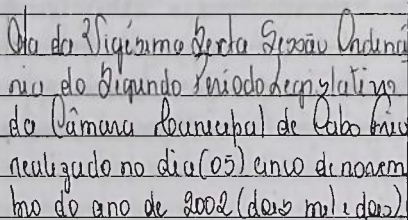 Ata da Vigésima Sexta Sessão Ordiná
ria do Segundo Período Legislativo
da Câmara Municipal de Cabo Frio
realizado no dia (05) cinco de novem
bro do ano de 2002 (dois mil e dois).